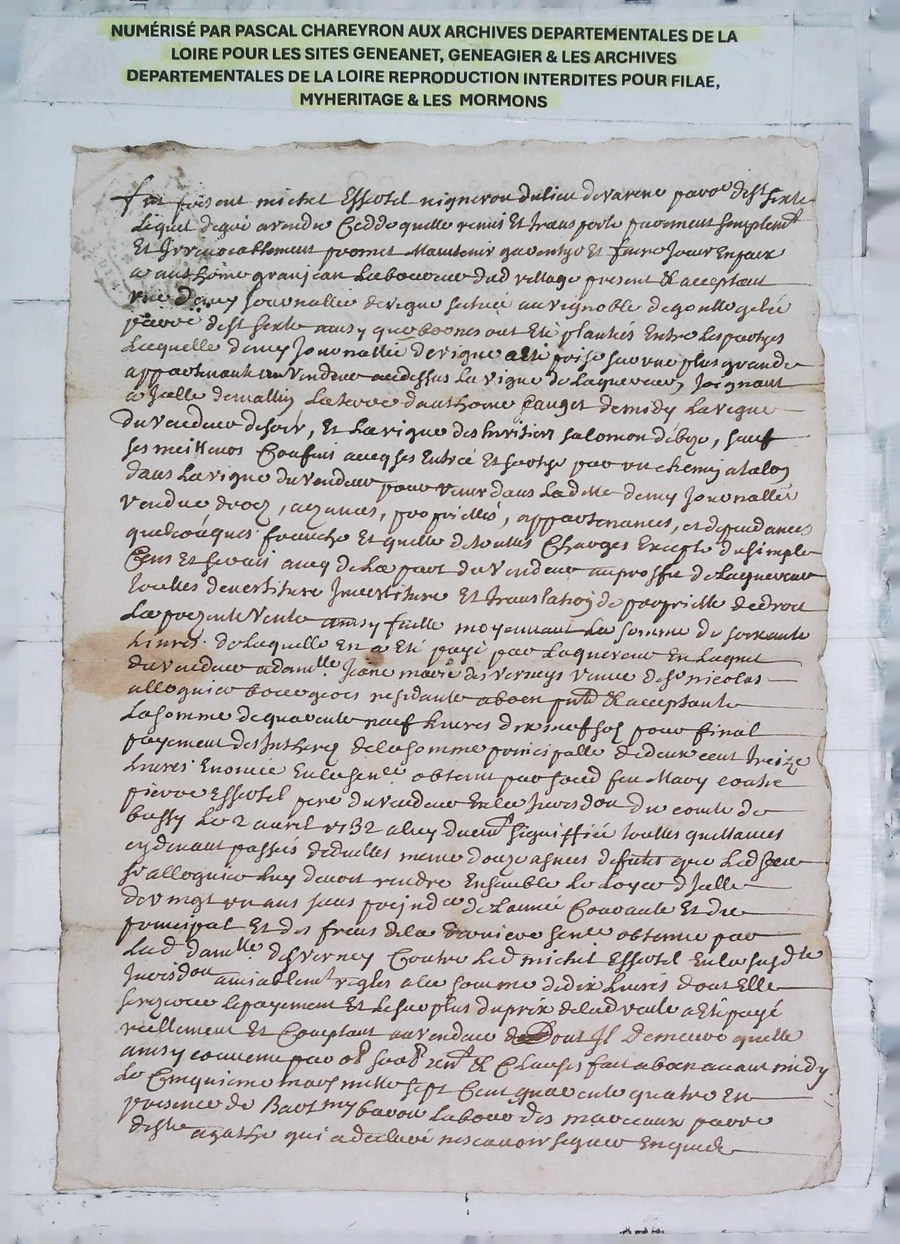 NUMÉRISÉ PAR PASCAL CHAREYRON AUX ARCHIVES DEPARTEMENTALES DE LA
LOIRE POUR LES SITES GENEANET, GENEAGIER & LES ARCHIVES
DEPARTEMENTALES DE LA LOIRE REPRODUCTION INTERDITES POUR FILAE,
MYHERITAGE & LES MORMONS
fut present michel Essertel vigneron du lieu de varene parroe de st sixte
Lequel de gré a vendu Cedde quitte remis Et transporte purement simplemt
Et Irrevocablement promet Maintenir garentir Et faire Jouir Enpaix
a anthoine granjean Laboureur dud village present & acceptant
une demy Journallée de vigne scituée au vignoble de goutte gelée
parroe de st sixte ainsy que bornes ont Eté plantées Entre Les parties
Laquelle demy Journallée de vigne a Eté prise sur une plus grande
appartenante au vendeur au dessus La vigne de Laquereur Joignant
a Jcelle de mattin La terre danthoine de midy La vigne
du vendeur de soir, Et La vigne des heritiers salomon de bize, sauf
ses meilleurs Confins avecq ses Entrée Et sortye par un chemin a talon
dans La vigne du vendeur pour venir dans Ladite demy Journallée
vendue droits, aizances, proprietés, appartenances, et dependances
quelconques franche Et quitte de toutes Charges Excepté du simple
Cens Et servis avecq de La part du vendeur au proffit de Laquereur
touttes devestiture Jnvestiture Et translation de proprieté de droit
La presente vente ainsy faitte moyennant La somme de soixante
Livres de Laquelle En a Eté payé par Laquereur En Laquit
du vendeur a damlle Jeane marie des verneys veuve de sr nicolas
allognier bourgeois residante a boen pnte & acceptante
La somme de quarente neuf Livres dix neuf sols pour final
payement des Interets de la somme principalle de deux cent treize
Livres Enoncée En la senlle obtenue par sond feu Mary contre
pierre Essertel pere du vendeur En la Jurisdon du comté de
bussy Le 2 avril 1732 a luy duemt signiffiée touttes quittances
cydevant passées d'icelles meme douze agnées de que Led sieur
sr allognier Luy devoit rendre Ensemble Le Loyer d'Jcelle
de vingt un ans sans prejudce de Lannée Courante Et du
principal Et des frais de la derniere senlle obtenue par
Lad damlle des verney Contre Led michel Essertel En la susdte
Jurisdon amiablemt reglés a la somme de dix Livres dont Elle
le payement Et Le surplus du prix de lad vente a Eté payé
reellement Et Comptant au vendeur dont Jl demeure quitte
ainsy convenu par & Clauses fait a boen avant midy
Le Cinquieme mars mille sept Cent quarente quatre En
presence de Barthmy bavou Labour des marceaux parroe
de ste agathe qui a declaré ne scavoir signer Enquis